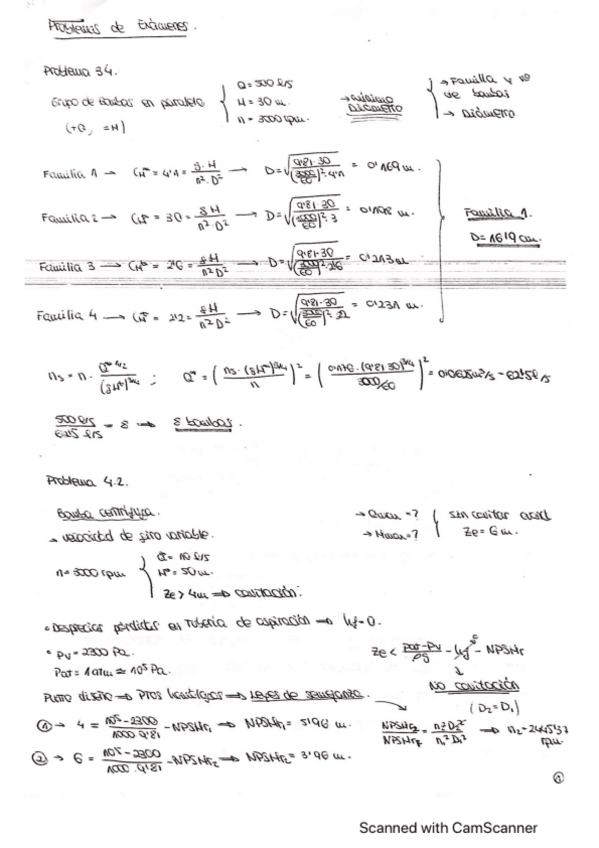 Problemas de Exámenes.
Problema 3.4.
Grupo de Bombas en paralelo
(+Q, =H)
Q = 500 l/s
H = 30 m.
n = 3000 rpm.
→ mínimo DIÁMETRO
→ Familia y nº de bombas
→ Diámetro
Familia 1 → C_H* = 4'1 = g·H / n²·D² → D = √(9'81·30 / (3000/60)²·4'1) = 0'169 m.
Familia 2 → C_H* = 3'0 = g·H / n²·D² → D = √(9'81·30 / (3000/60)²·3) = 0'198 m.
Familia 3 → C_H* = 2'6 = g·H / n²D² → D = √(9'81·30 / (3000/60)²·2'6) = 0'213 m.
Familia 4 → C_H* = 2'2 = g·H / n²D² → D = √(9'81·30 / (3000/60)²·2'2) = 0'231 m.
Familia 1.
D = 16'9 cm.
ns = n · Q*^1/2 / (gH*)^3/4 ; Q* = (ns·(gH*)^3/4 / n)² = (0'176·(9'81·30)^3/4 / 3000/60)² = 0'0625 m³/s = 62'5 l/s
500 l/s / 62'5 l/s = 8 → 8 bombas.
Problema 4.2.
Bomba centrífuga.
→ velocidad de giro variable.
→ Qmax = ?
→ Hmax = ?
sin cavitar
Ze = 6 m.
n = 3000 rpm
Q* = 110 l/s
H* = 50 m.
Ze > 4m → cavitación:
• Desprecias pérdidas en tubería de aspiración → hf = 0.
• Pv = 2300 Pa.
Pat = 1 atm ≈ 10⁵ Pa.
Ze < Pat - Pv / ρg - hf - NPSHr
NO cavitación
Punto diseño → Ptos homólogos → Leyes de semejanza.
(D2 = D1)
① → 4 = 10⁵ - 2300 / 1000·9'81 - NPSHr1 → NPSHr1 = 5'96 m.
NPSHr2 / NPSHr1 = n2² D2² / n1² D1² → n2 = 2445'37 rpm.
② → 6 = 10⁵ - 2300 / 1000·9'81 - NPSHr2 → NPSHr2 = 3'96 m.
①
Scanned with CamScanner